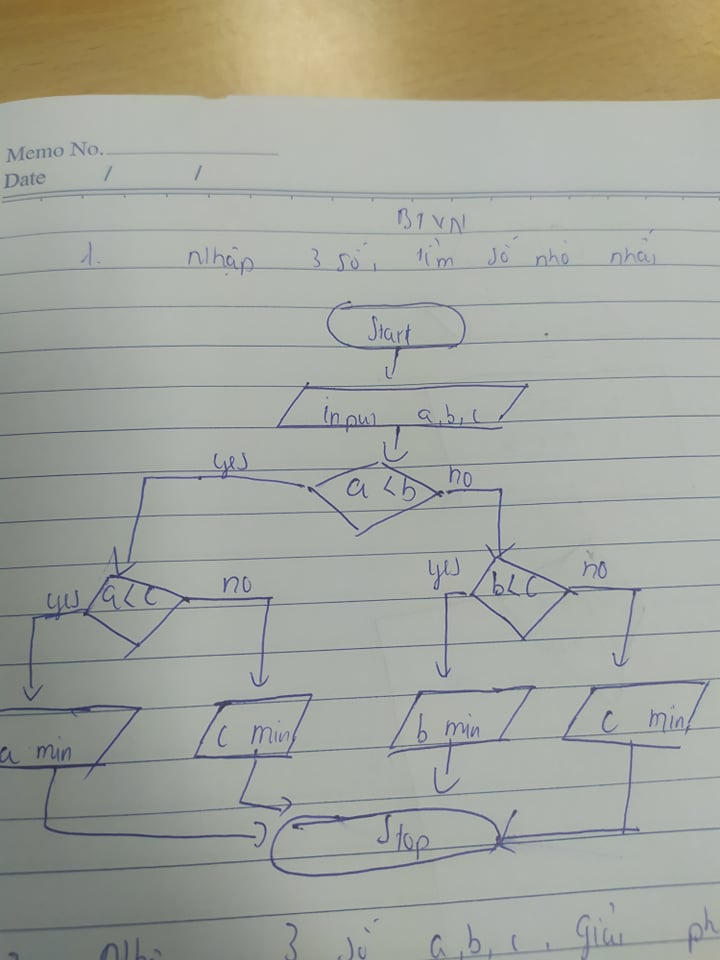 Memo No.
Date / /
BTVN
1. Nhập 3 số, tìm số nhỏ nhất
Start
input a,b,c
yes a<b no
yes a<c no yes b<c no
a min c min b min c min
Stop
3 số a,b,c, Giải ph